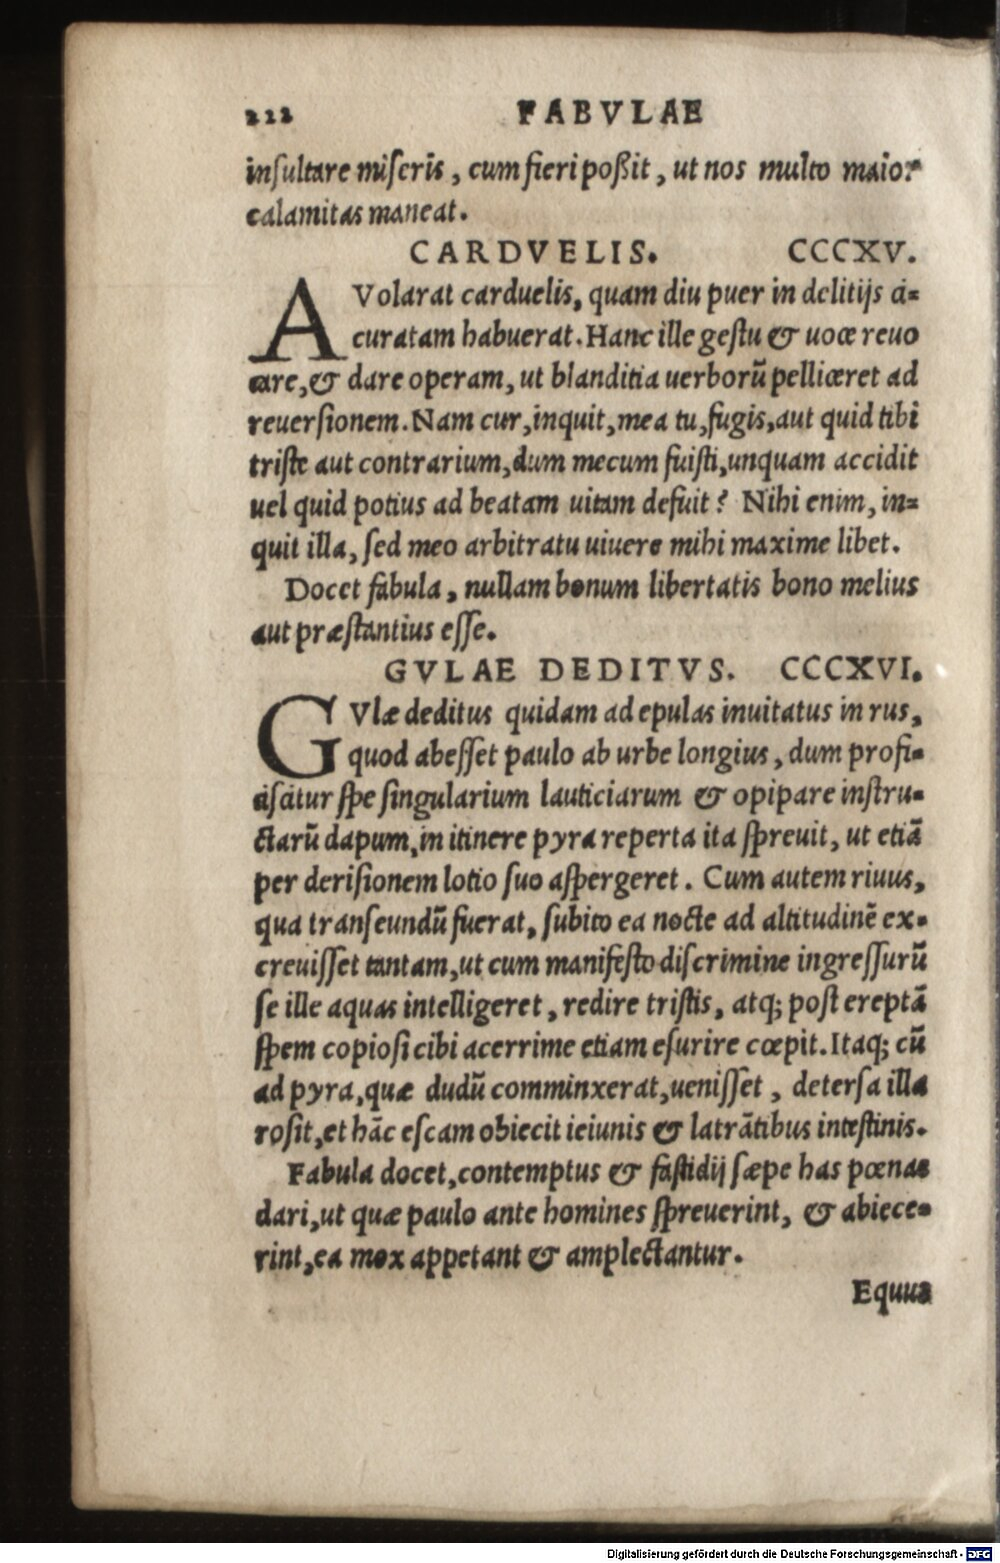 212 FABVLAE
insultare miseris, cum fieri poßit, ut nos multo maior
calamitas maneat.
CARDVELIS. CCCXV.
AVolarat carduelis, quam diu puer in delitijs a-
curatam habuerat. Hanc ille gestu & uoce reuo
care, & dare operam, ut blanditia uerborũ pelliceret ad
reuersionem. Nam cur, inquit, mea tu, fugis, aut quid tibi
triste aut contrarium, dum mecum fuisti, unquam accidit
uel quid potius ad beatam uitam defuit? Nihi enim, in-
quit illa, sed meo arbitratu uiuere mihi maxime libet.
Docet fabula, nullam bonum libertatis bono melius
aut præstantius esse.
GVLAE DEDITVS. CCCXVI.
GVlæ deditus quidam ad epulas inuitatus in rus,
quod abesset paulo ab urbe longius, dum profi-
ciscitur spe singularium lauticiarum & opipare instru-
ctarũ dapum, in itinere pyra reperta ita spreuit, ut etiã
per derisionem lotio suo aspergeret. Cum autem riuus,
qua transeundũ fuerat, subito ea nocte ad altitudinẽ ex-
creuisset tantam, ut cum manifesto discrimine ingressurũ
se ille aquas intelligeret, redire tristis, atq; post ereptã
spem copiosi cibi acerrime etiam esurire cœpit. Itaq; cũ
ad pyra, quæ dudũ comminxerat, uenisset, detersa illa
rosit, et hãc escam obiecit ieiunis & latrãtibus intestinis.
Fabula docet, contemptus & fastidij sæpe has pœnas
dari, ut quæ paulo ante homines spreuerint, & abiece-
rint, ea mox appetant & amplectantur.
Equus
Digitalisierung gefördert durch die Deutsche Forschungsgemeinschaft - DFG